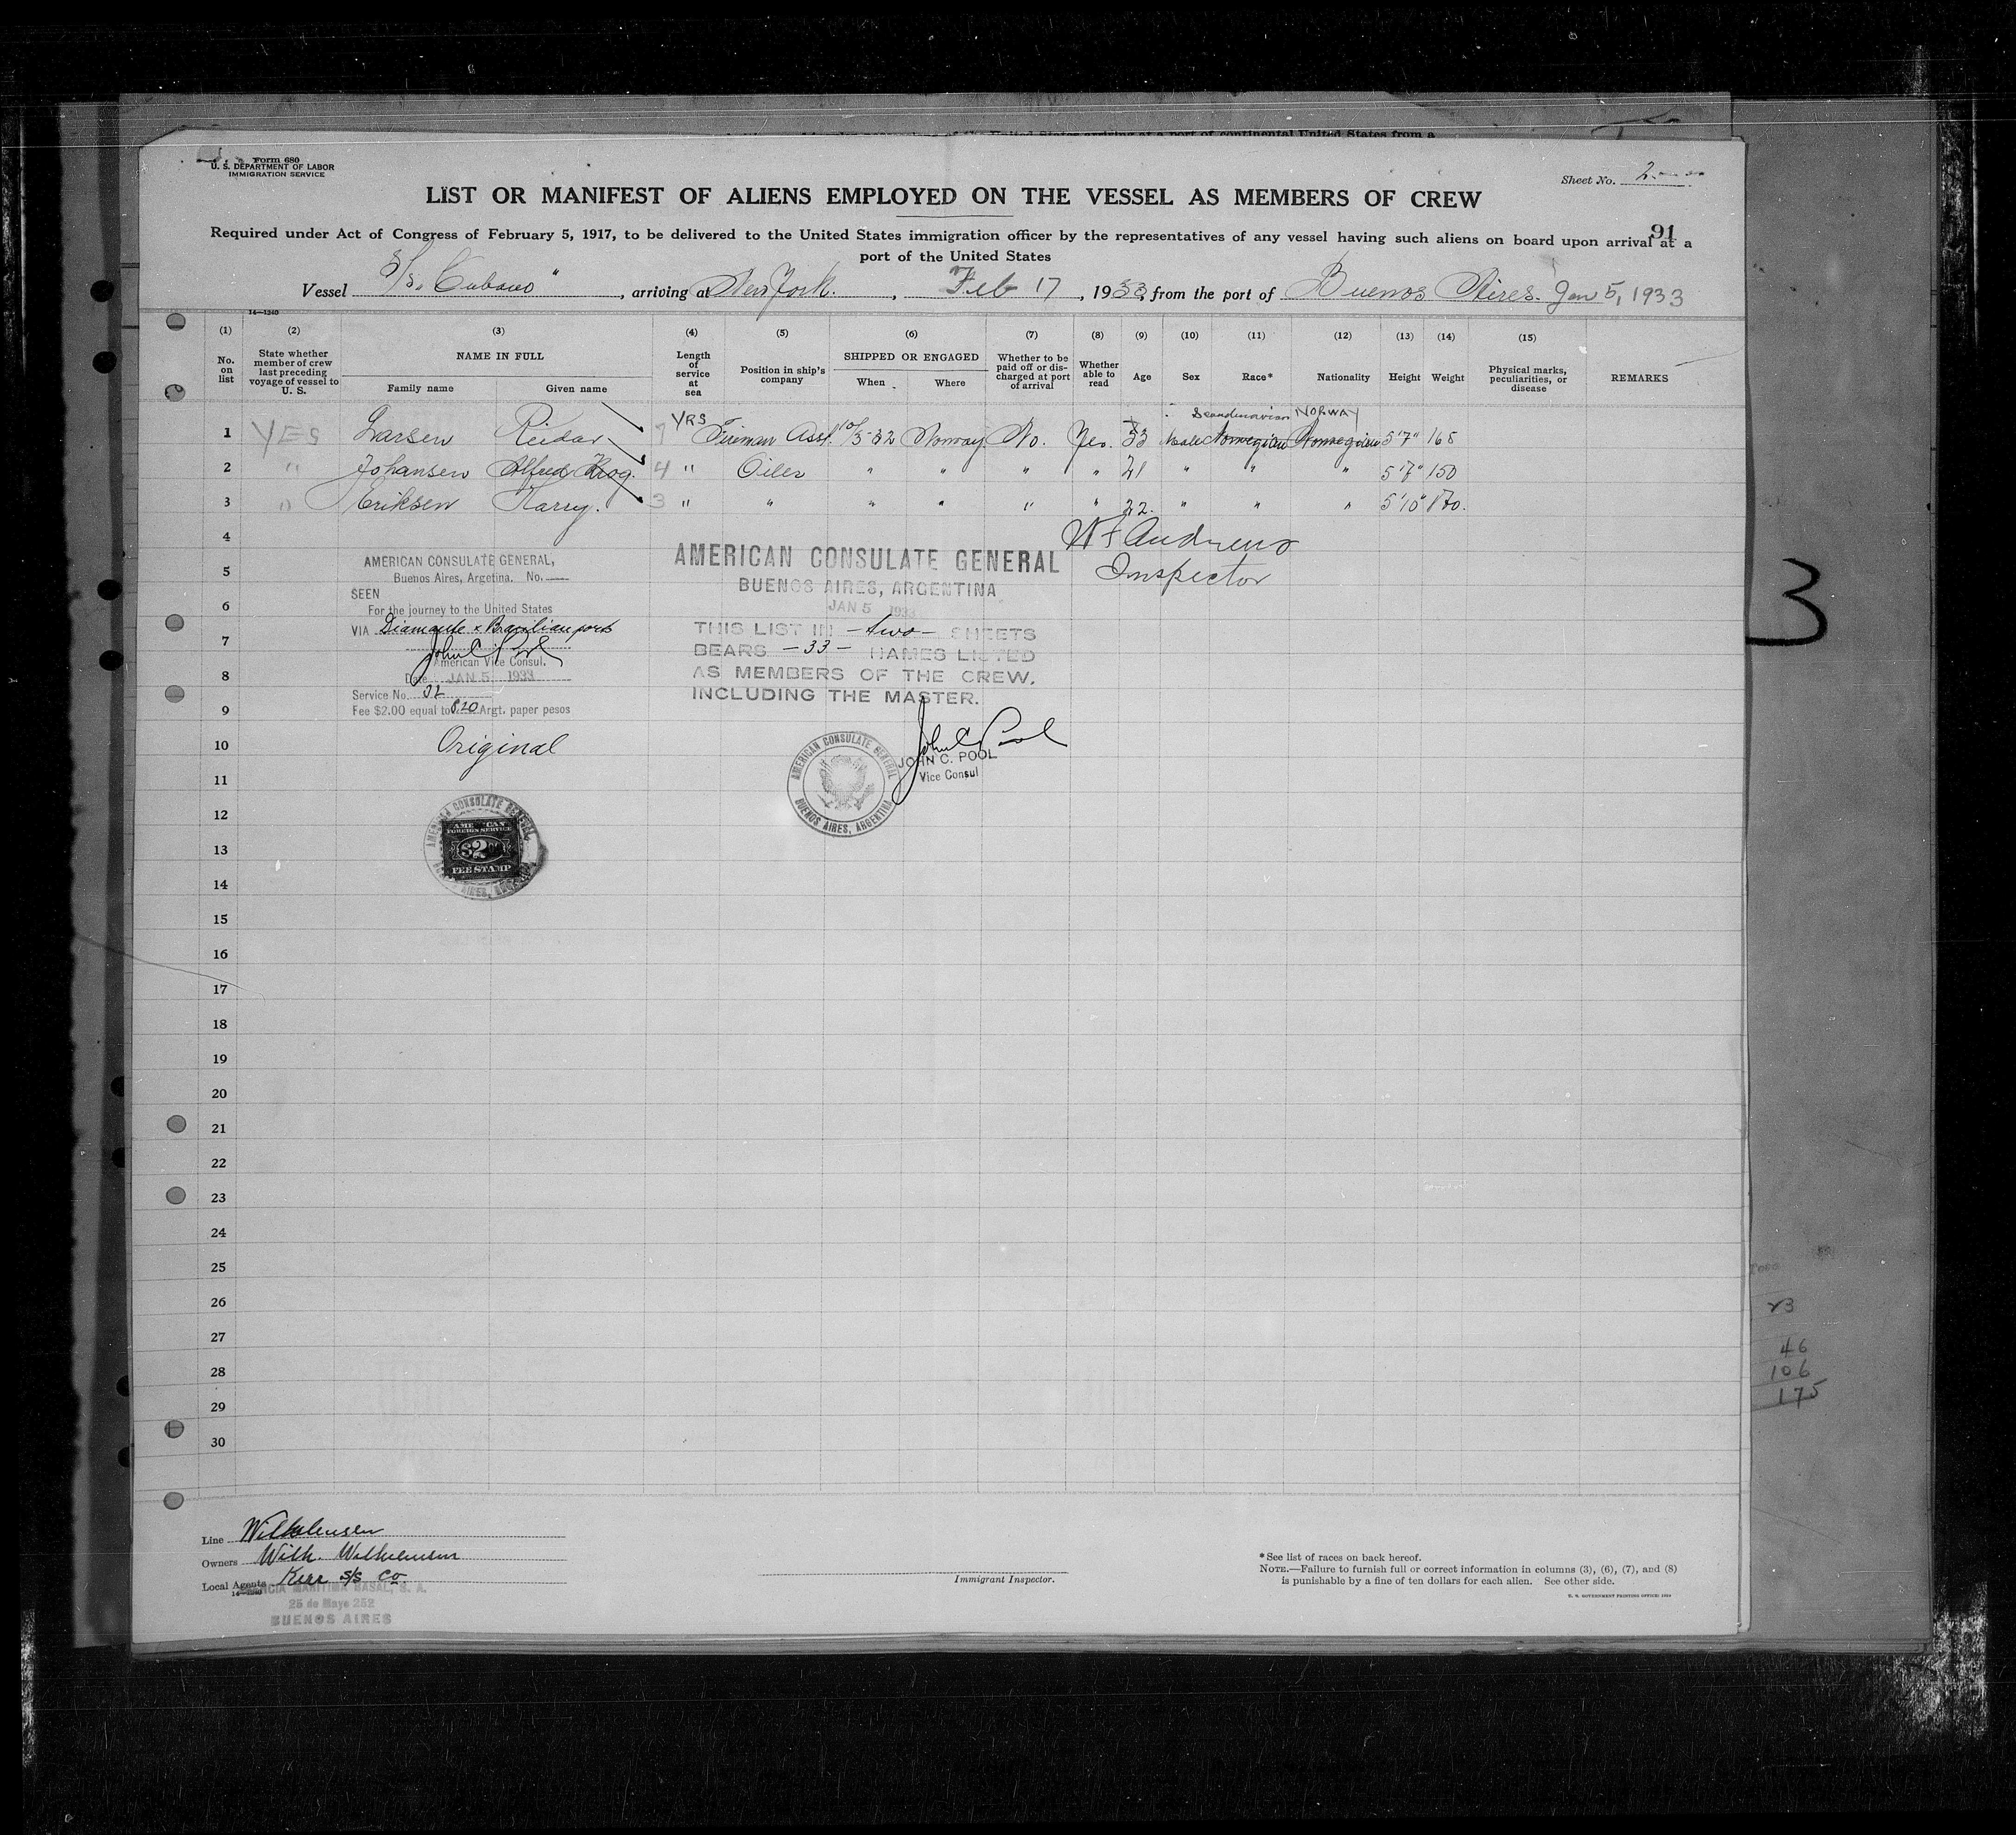 Form 680
U. S. DEPARTMENT OF LABOR
IMMIGRATION SERVICE
Sheet No. 2
LIST OR MANIFEST OF ALIENS EMPLOYED ON THE VESSEL AS MEMBERS OF CREW
91
Required under Act of Congress of February 5, 1917, to be delivered to the United States immigration officer by the representatives of any vessel having such aliens on board upon arrival at a
port of the United States
Vessel S/S. Cubano", arriving at New York, Feb 17, 1933, from the port of Buenos Aires. Jan 5, 1933
14—1240
(1) (2) (3) (4) (5) (6) (7) (8) (9) (10) (11) (12) (13) (14) (15)
No. on list
State whether member of crew last preceding voyage of vessel to U. S.
NAME IN FULL
Family name Given name
Length of service at sea
Position in ship's company
SHIPPED OR ENGAGED
When Where
Whether to be paid off or discharged at port of arrival
Whether able to read
Age Sex Race* Nationality Height Weight
Physical marks, peculiarities, or disease
REMARKS
YRS Scandinavian NORWAY
1 YES Larsen Reidar 7 Fireman Asst. 10/5-32 Norway. No. Yes. 33 Male Norwegian Norwegian 5'7" 168
2 " Johansen Alfred Krog. 4 " Oiler " " " " 21 " " " 5'7" 150
3 " Eriksen Harry. 3 " " " " " " 22. " " " 5'10" 170.
4 W F Andrews
5 Inspector
6
7
8
9
10
11
12
13
14
15
16
17
18
19
20
21
22
23
24
25
26
27
28
29
30
AMERICAN CONSULATE GENERAL,
Buenos Aires, Argetina. No.
SEEN
For the journey to the United States
VIA Diamante & Brazilian ports
John C. Pool
American Vice Consul.
Date JAN 5 1933
Service No. 32
Fee $2.00 equal to 8.20 Argt. paper pesos
Original
AMERICAN CONSULATE GENERAL
AMERICAN
FOREIGN SERVICE
$2
FEE STAMP
AMERICAN CONSULATE GENERAL
BUENOS AIRES, ARGENTINA
JAN 5 1933
THIS LIST IN -two- SHEETS
BEARS -33- NAMES LISTED
AS MEMBERS OF THE CREW,
INCLUDING THE MASTER.
John C Pool
JOHN C. POOL
Vice Consul
AMERICAN CONSULATE GENERAL
BUENOS AIRES, ARGENTINA
3
23
46
106
175
Line Wilhelmsen
Owners Wilh. Wilhelmsen
Local Agents Kerr S/S Co
14—1240
MARITIMA BASAL, S. A.
25 de Mayo 252
BUENOS AIRES
Immigrant Inspector.
*See list of races on back hereof.
NOTE.—Failure to furnish full or correct information in columns (3), (6), (7), and (8)
is punishable by a fine of ten dollars for each alien. See other side.